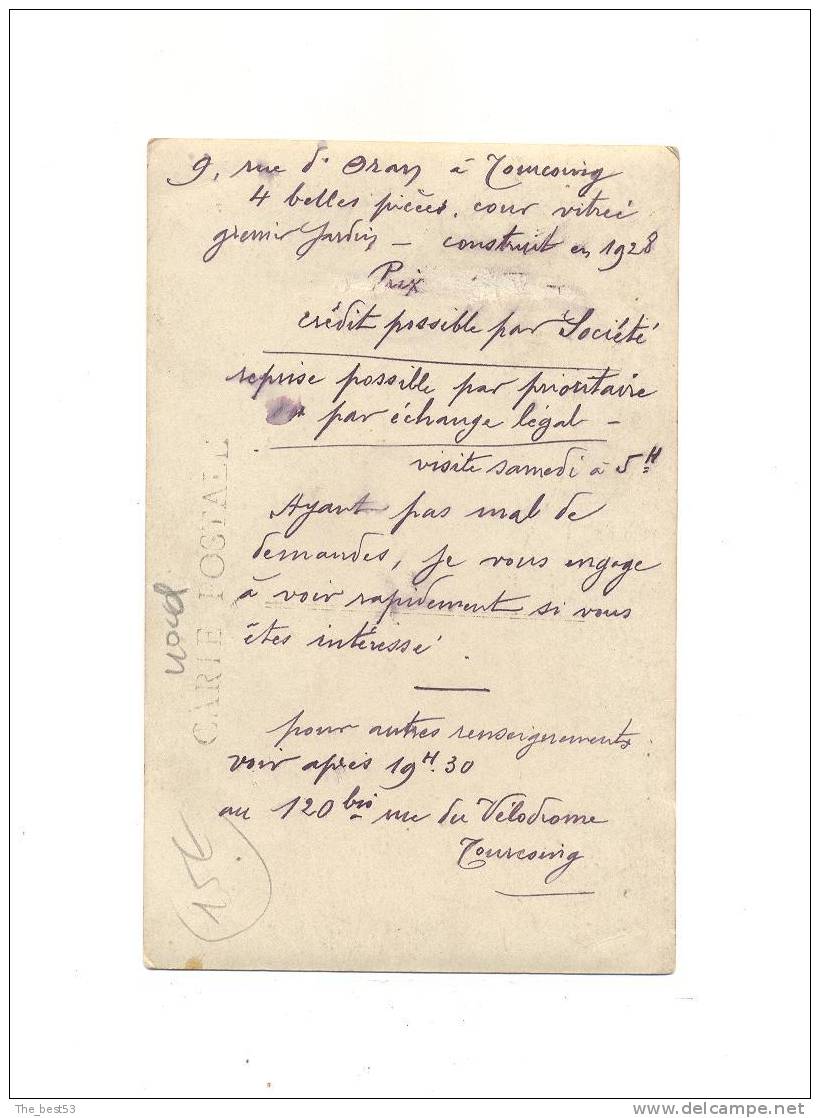 9, rue d'Oran à Tourcoing
4 belles pièces, cour vitrée
grenier Jardin – construit en 1928
Prix
crédit possible par Société
reprise possible par prioritaire
par échange légal –
visite samedi à 5H
Ayant pas mal de
demandes, je vous engage
à voir rapidement si vous
êtes intéressé
pour autres renseignements
voir après 19H.30
au 120 bis rue du Vélodrome
Tourcoing
CARTE POSTALE
Nord
15€
The_best53
delcampe.net